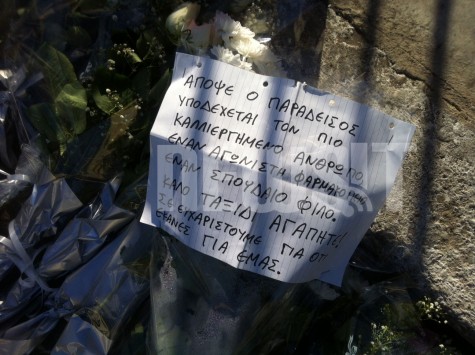 ΑΠΟΨΕ Ο ΠΑΡΑΔΕΙΣΟΣ
ΥΠΟΔΕΧΕΤΑΙ ΤΟΝ ΠΙΟ
ΚΑΛΛΙΕΡΓΗΜΕΝΟ ΑΝΘΡΩΠΟ
ΕΝΑΝ ΑΓΩΝΙΣΤΗ
ΕΝΑΝ ΣΠΟΥΔΑΙΟ ΦΙΛΟ.
ΚΑΛΟ ΤΑΞΙΔΙ ΑΓΑΠΗΤΕ!
ΣΕ ΕΥΧΑΡΙΣΤΟΥΜΕ ΓΙΑ ΟΤΙ
ΕΚΑΝΕΣ ΓΙΑ ΕΜΑΣ.